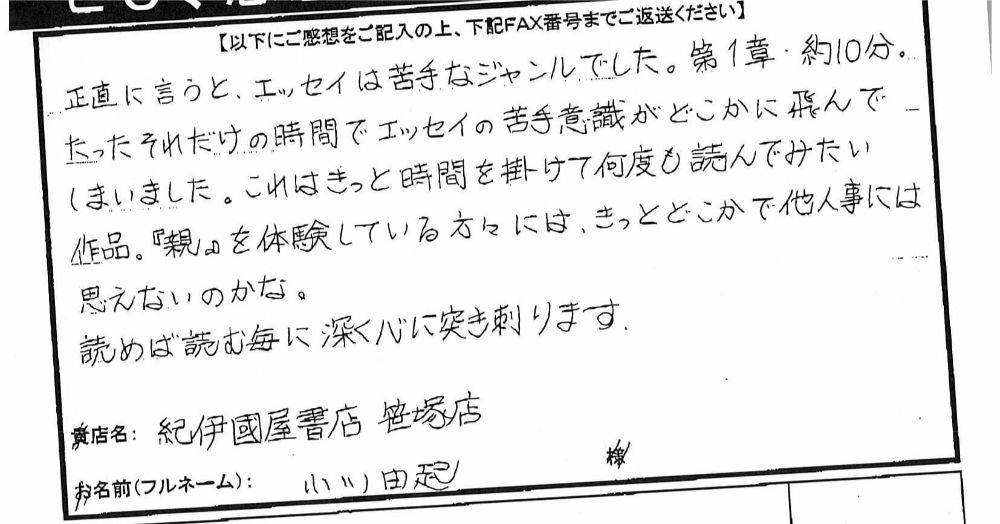 【以下にご感想をご記入の上、下記FAX番号までご返送ください】
正直に言うと、エッセイは苦手なジャンルでした。第1章・約10分。
たったそれだけの時間でエッセイの苦手意識がどこかに飛んで
しまいました。これはきっと時間を掛けて何度も読んでみたい
作品。『親』を体験している方々には、きっとどこかで他人事には
思えないのかな。
読めば読む毎に深く心に突き刺ります.
貴店名: 紀伊國屋書店 笹塚店
お名前(フルネーム): 小川由起 様